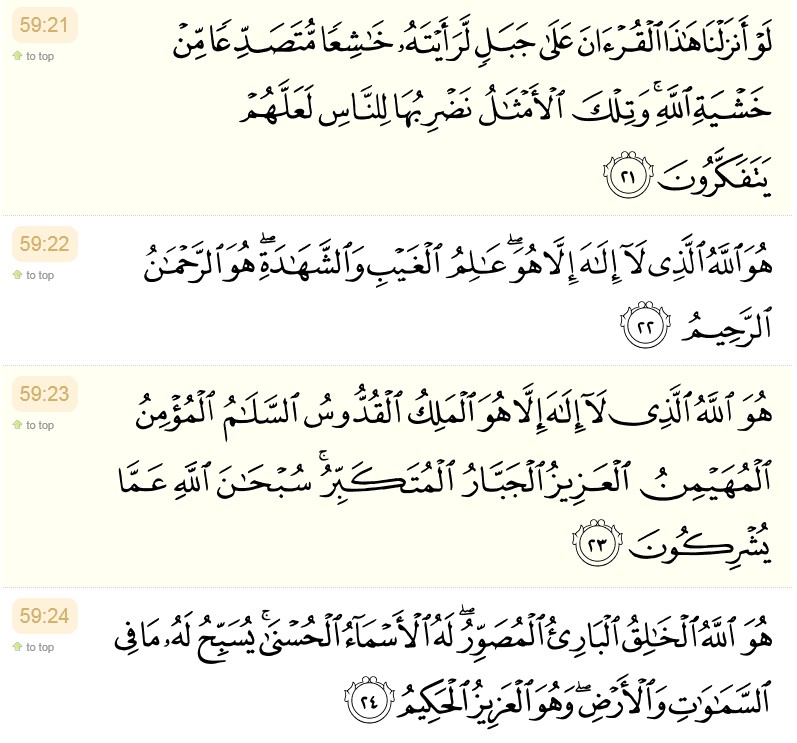 59:21
to top
لَوْ أَنزَلْنَا هَٰذَا ٱلْقُرْءَانَ عَلَىٰ جَبَلٍ لَّرَأَيْتَهُۥ خَٰشِعًا مُّتَصَدِّعًا مِّنْ
خَشْيَةِ ٱللَّهِ ۚ وَتِلْكَ ٱلْأَمْثَٰلُ نَضْرِبُهَا لِلنَّاسِ لَعَلَّهُمْ
يَتَفَكَّرُونَ ٢١
59:22
to top
هُوَ ٱللَّهُ ٱلَّذِى لَآ إِلَٰهَ إِلَّا هُوَ ۖ عَٰلِمُ ٱلْغَيْبِ وَٱلشَّهَٰدَةِ ۖ هُوَ ٱلرَّحْمَٰنُ
ٱلرَّحِيمُ ٢٢
59:23
to top
هُوَ ٱللَّهُ ٱلَّذِى لَآ إِلَٰهَ إِلَّا هُوَ ٱلْمَلِكُ ٱلْقُدُّوسُ ٱلسَّلَٰمُ ٱلْمُؤْمِنُ
ٱلْمُهَيْمِنُ ٱلْعَزِيزُ ٱلْجَبَّارُ ٱلْمُتَكَبِّرُ ۚ سُبْحَٰنَ ٱللَّهِ عَمَّا
يُشْرِكُونَ ٢٣
59:24
to top
هُوَ ٱللَّهُ ٱلْخَٰلِقُ ٱلْبَارِئُ ٱلْمُصَوِّرُ ۖ لَهُ ٱلْأَسْمَآءُ ٱلْحُسْنَىٰ ۚ يُسَبِّحُ لَهُۥ مَا فِى
ٱلسَّمَٰوَٰتِ وَٱلْأَرْضِ ۖ وَهُوَ ٱلْعَزِيزُ ٱلْحَكِيمُ ٢٤